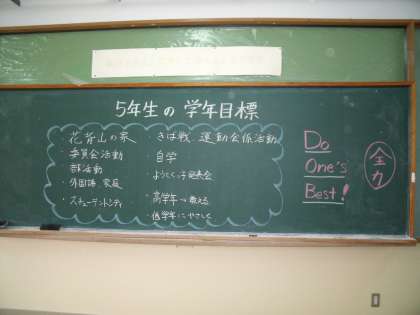 5年生の学年目標
花背山の家
委員会活動
部活動
・外国語、家庭
・スチューデントシティ
きば戦、運動会係活動
・自学
・ようとくっ子発表会
・高学年→教える
・低学年にやさしく
Do
One's
Best!
全力